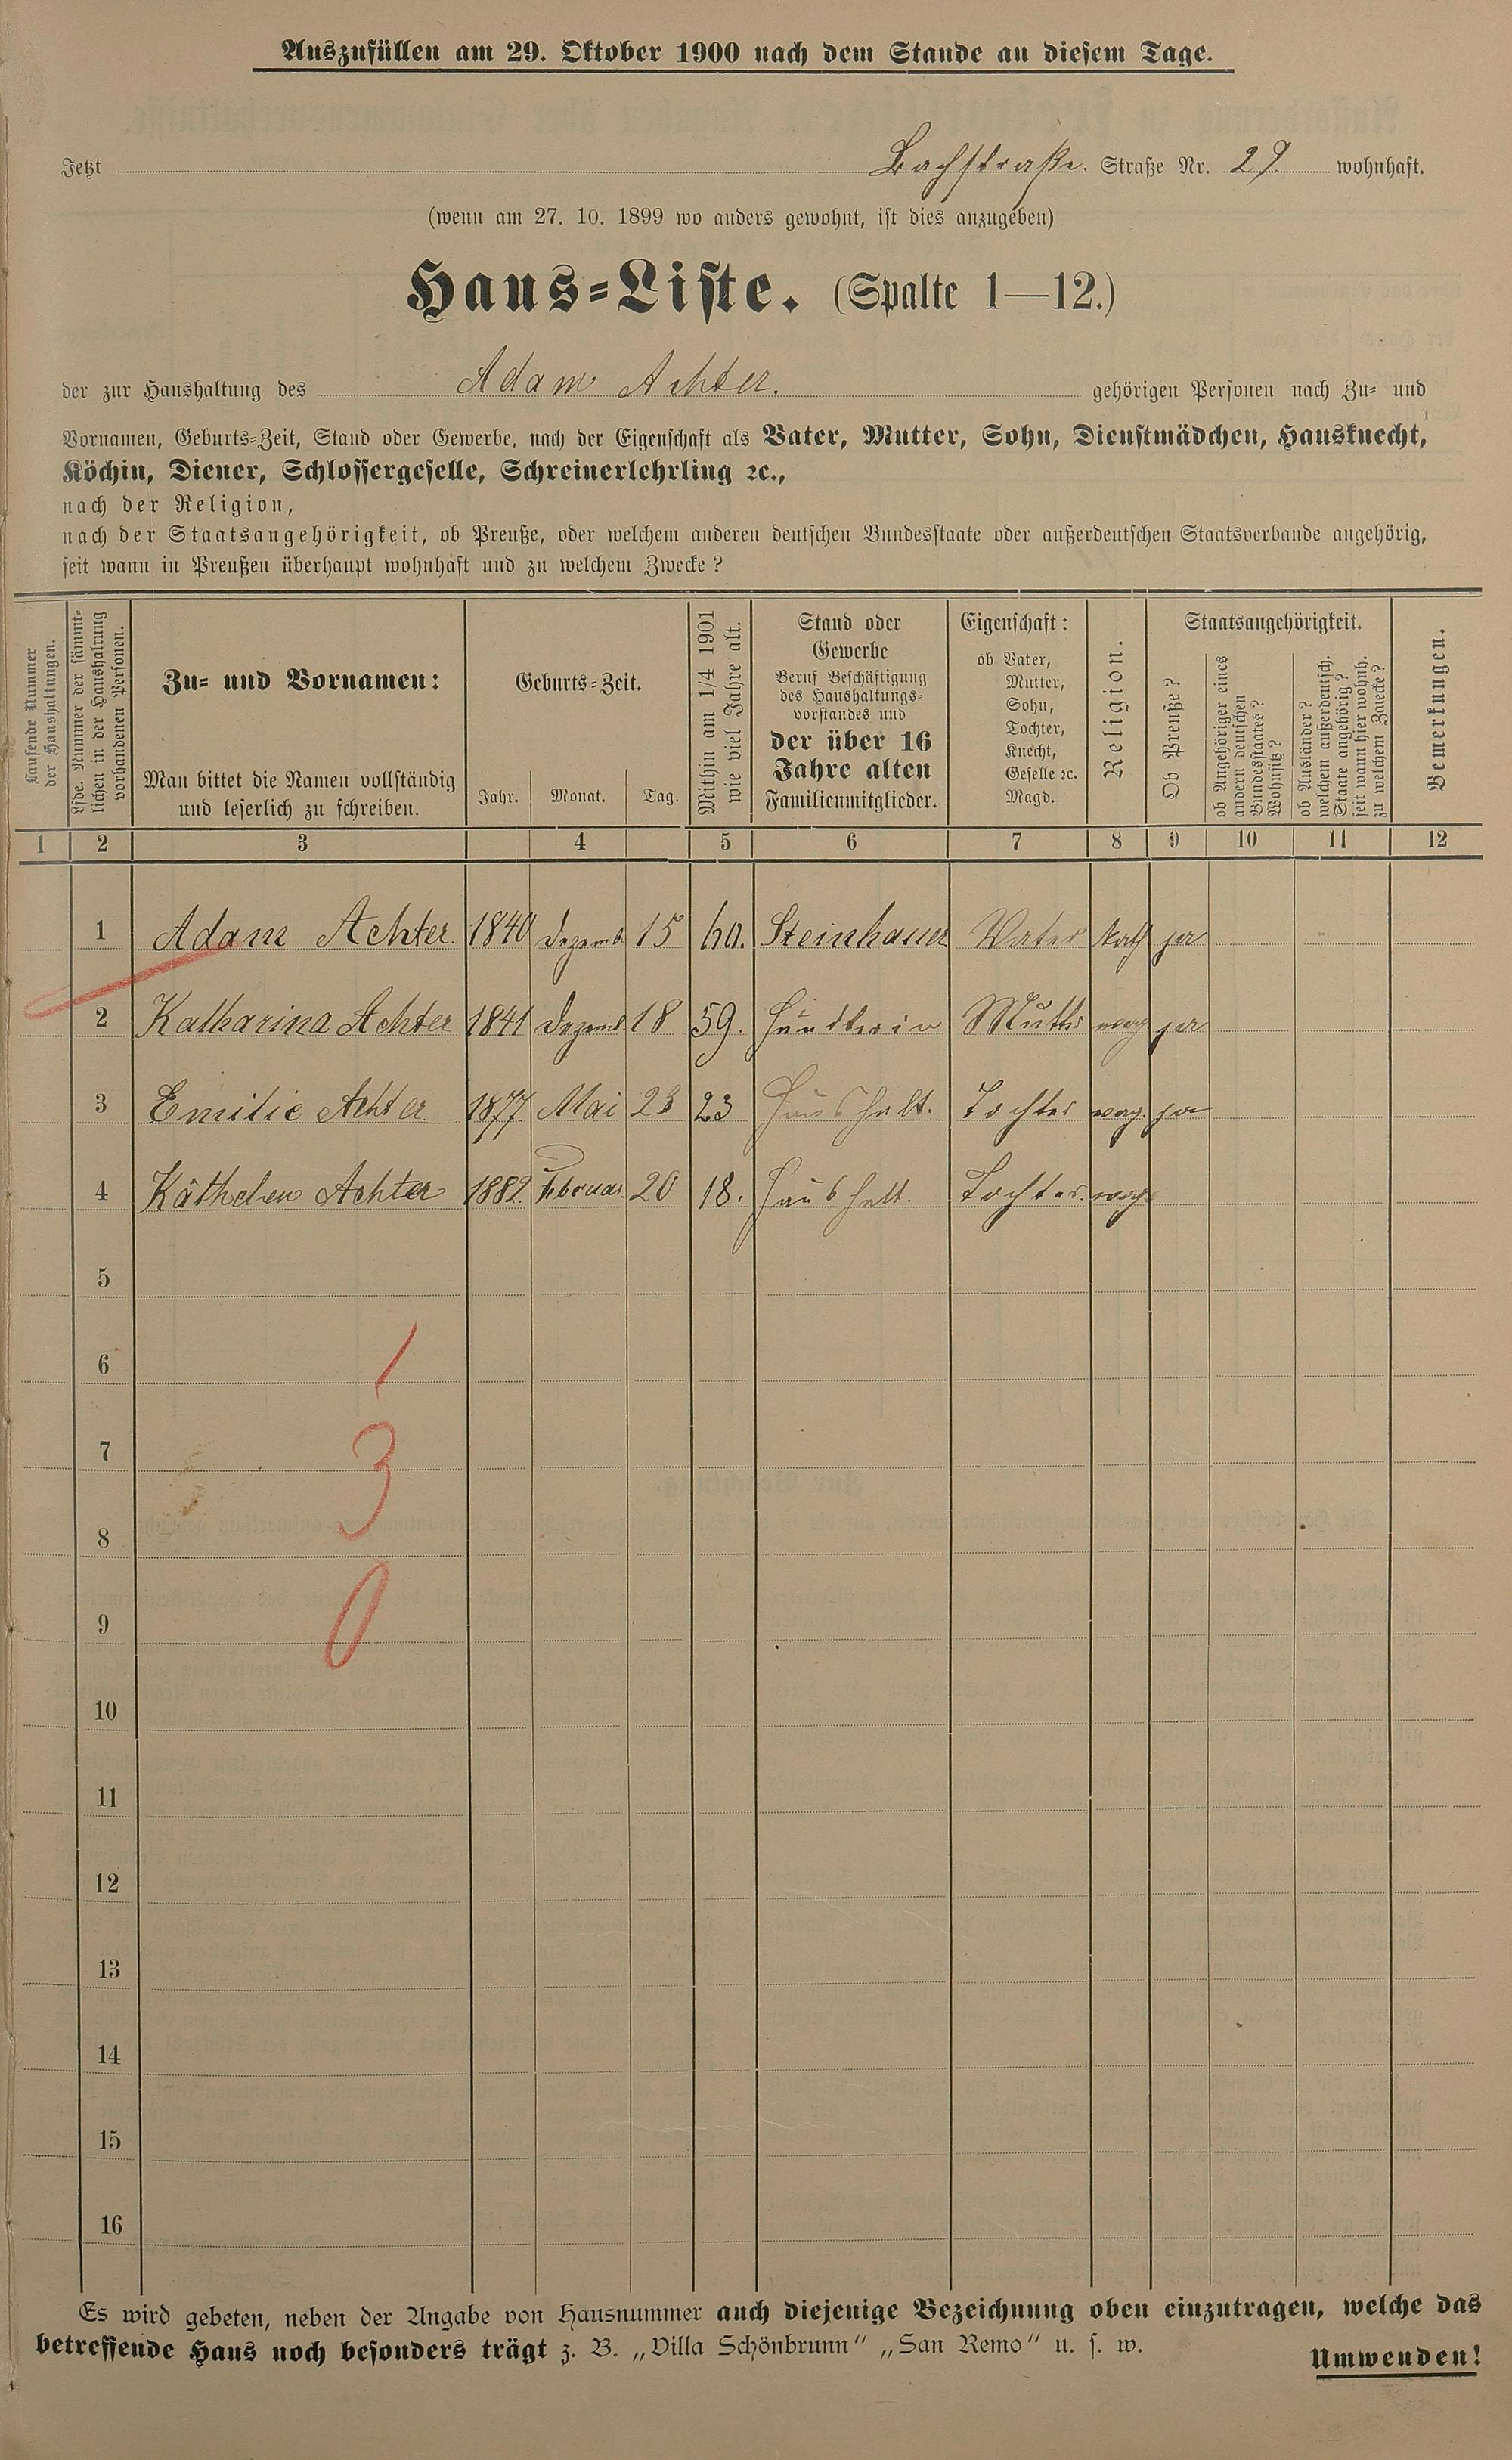 Auszufüllen am 29. Oktober 1900 nach dem Stande an diesem Tage.
Jetzt Bachstraße. Straße Nr. 29. wohnhaft.
(wenn am 27. 10. 1899 wo anders gewohnt, ist dies anzugeben)
Haus=Liste. (Spalte 1—12.)
der zur Haushaltung des Adam Achter. gehörigen Personen nach Zu= und
Vornamen, Geburts=Zeit, Stand oder Gewerbe, nach der Eigenschaft als Vater, Mutter, Sohn, Dienstmädchen, Hausknecht,
Köchin, Diener, Schlossergeselle, Schreinerlehrling ꝛc.,
nach der Religion,
nach der Staatsangehörigkeit, ob Preuße, oder welchem anderen deutschen Bundesstaate oder außerdeutschen Staatsverbande angehörig,
seit wann in Preußen überhaupt wohnhaft und zu welchem Zwecke?
Laufende Nummer
der Haushaltungen.
Lfde. Nummer der sämmt-
lichen in der Haushaltung
vorhandenen Personen.
Zu= und Vornamen:
Man bittet die Namen vollständig
und leserlich zu schreiben.
Geburts=Zeit.
Jahr. Monat. Tag.
Mithin am 1/4 1901
wie viel Jahre alt.
Stand oder
Gewerbe
Beruf Beschäftigung
des Haushaltungs=
vorstandes und
der über 16
Jahre alten
Familienmitglieder.
Eigenschaft:
ob Vater,
Mutter,
Sohn,
Tochter,
Knecht,
Geselle ꝛc.
Magd.
Religion.
Staatsangehörigkeit.
Ob Preuße?
ob Angehöriger eines
andern deutschen
Bundesstaates?
Wohnsitz?
ob Ausländer?
welchem außerdeutsch.
Staate angehörig?
seit wann hier wohnh.
zu welchem Zwecke?
Bemerkungen.
1 2 3 4 5 6 7 8 9 10 11 12
1 Adam Achter. 1840 Dezemb 15 60. Steinhauer Vater kath ja
2 Katharina Achter 1841 Dezemb 18 59. Händlerin Mutter evag ja
3 Emilie Achter 1877. Mai 23 23 Haushalt. Tochter evag. ja
4 Käthchen Achter 1882. Februar. 20 18. Haushalt. Tochter. evag.
5
6 1
7 3
8
9 0
10
11
12
13
14
15
16
Es wird gebeten, neben der Angabe von Hausnummer auch diejenige Bezeichnung oben einzutragen, welche das
betreffende Haus noch besonders trägt z. B. „Villa Schönbrunn" „San Remo" u. s. w.
Umwenden!